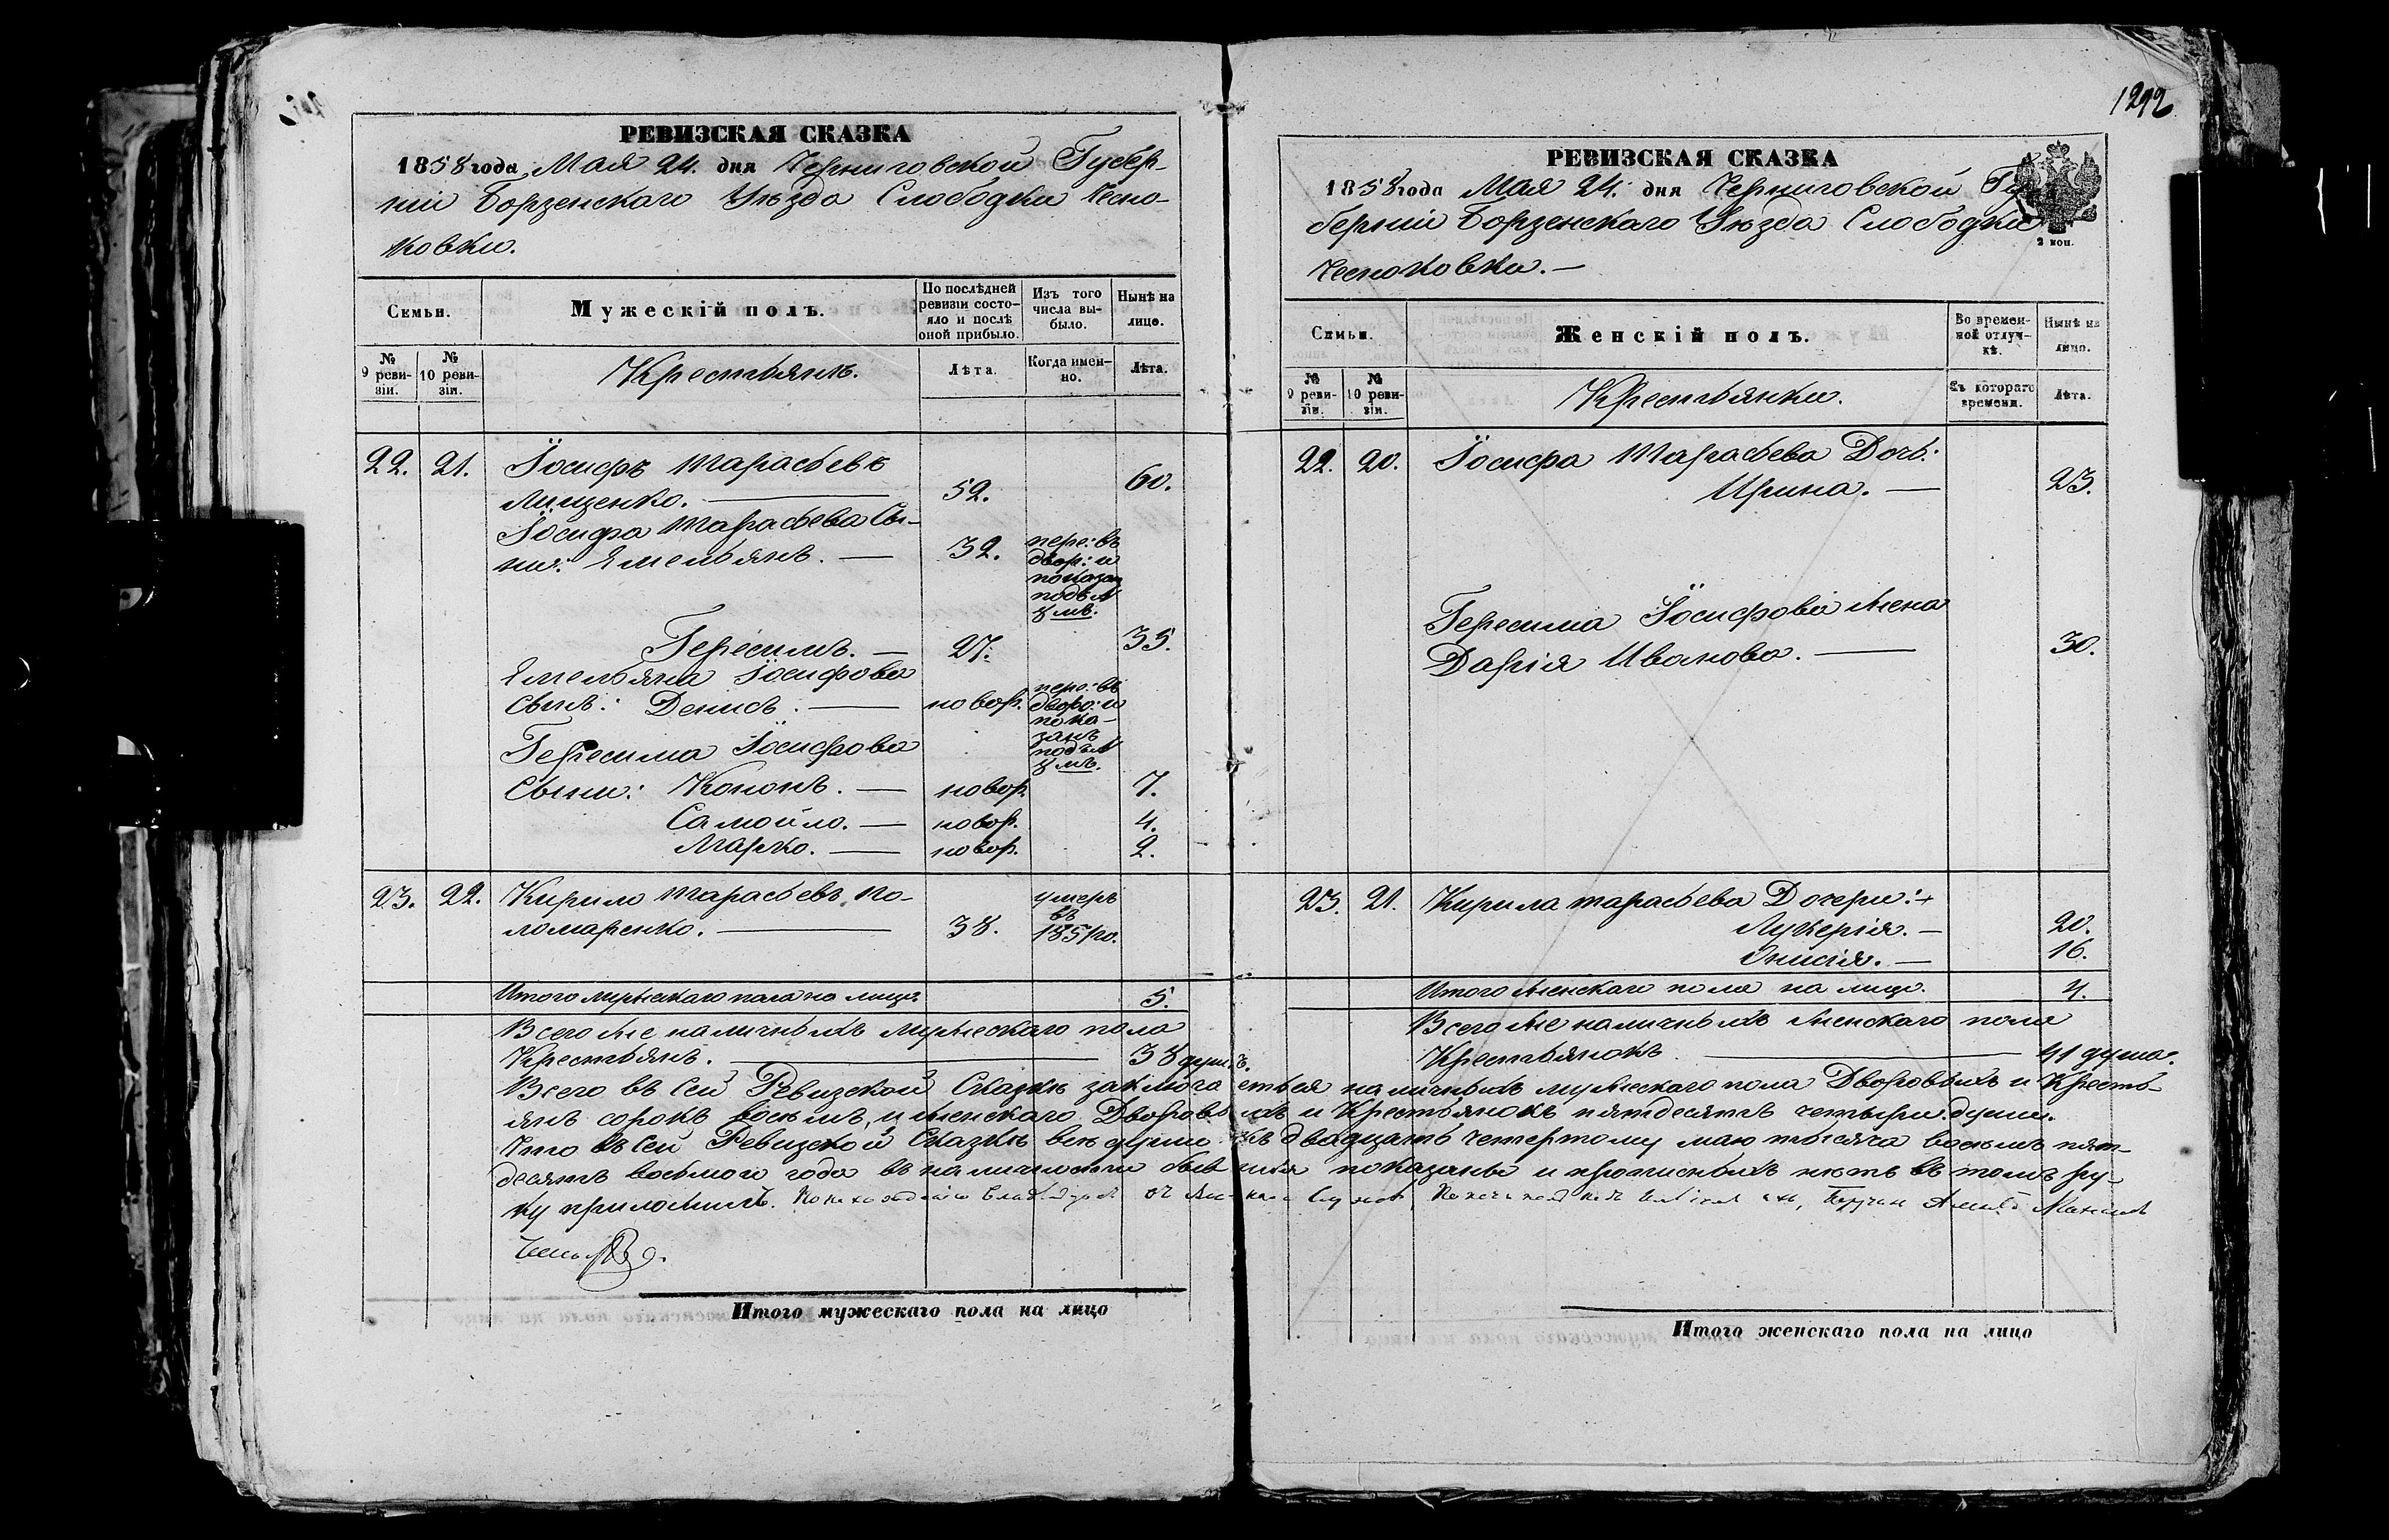 1292
РЕВИЗСКАЯ СКАЗКА
1858 года Мая 24. дня Черниговской Губер-
ніи Борзенскаго Уѣзда Слободки Чесно-
ковки.
Семьи.
Мужескій полъ.
По послѣдней ревизіи состо-яло и послѣ оной прибыло.
Изъ того числа вы-было.
Нынѣ на лицо.
№ 9 реви-зіи.
№ 10 реви-зіи.
Крестьянъ.
Лѣта.
Когда имен-но.
Лѣта.
22. 21. Іосифъ Тарасьевъ
Лищенко. 52. 60.
Іосифа Тарасьева Сы-
нъ: Емельянъ. — 32. пере: въ
двор: и
показан
подъ №
8 мъ.
Герасимъ. — 27. 35.
Емельяна Іосифова
Сынъ: Денисъ. — новор. пере: въ
дворо: и
пока-
занъ
подъ №
8 мъ.
Герасима Іосифова
Сыны: Кононъ. — новор. 7.
Самойло. — новор. 4.
Марко. — новор. 2.
23. 22. Кирило Тарасьевъ По-
ломаренко. — 38. умеръ
въ
185 го.
Итого мужескаго пола на лицо 5.
Всего же наличныхъ мужескаго пола
Крестьянъ. — 38 душъ.
РЕВИЗСКАЯ СКАЗКА
1858 года Мая 24. дня Черниговской Гу-
берніи Борзенскаго Уѣзда Слободки
Чесноковки. —
2 коп.
Семьи.
Женскій полъ.
Во времен-ной отлуч-кѣ.
Нынѣ на лицо.
№ 9 реви-зіи.
№ 10 реви-зіи.
Крестьянки.
Съ котораго времени.
Лѣта.
22. 20. Іосифа Тарасьева Дочь:
Ирина. — 23.
Герасима Іосифова жена
Дарія Иванова. — 30.
23. 21. Кирила Тарасьева Дочери:
Лукерія. — 20.
Онисія. — 16.
Итого женскаго пола на лицо. 4.
Всего же наличныхъ женскаго пола
Крестьянокъ — 41 душа.
Всего въ сей Ревизской Сказкѣ заключается наличныхъ мужескаго пола Дворовыхъ и Кресть-
янъ сорокъ восьмъ, и женскаго Дворовыхъ и Крестьянокъ пятдесятъ четыри души.
Что въ сей Ревизской Сказкѣ всѣ души къ двадцать четвертому маю тысяча восьмъ пят-
десятъ восьмого года въ наличности бывшія показаны и прописныхъ нѣтъ въ томъ ру-
ку приложилъ.
Итого мужескаго пола на лицо
Итого женскаго пола на лицо